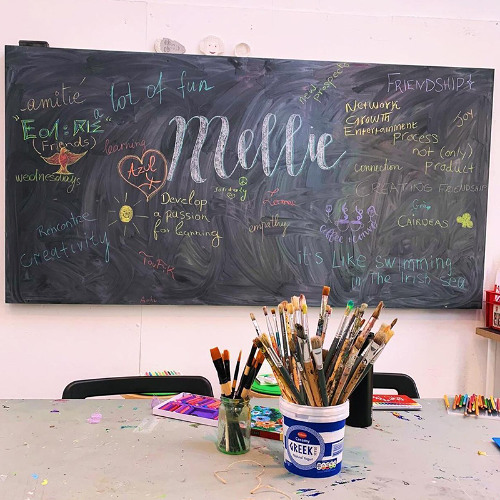 amitié
a lot of fun
(Friends)
wednesdays
learning
Azul
Mellie
new prospects
FRIENDSHIP
Network
Growth
Entertainment
Joy
Process
not (only)
product
Connection
CREATING FRIENDSHIP
CAIRDEAS
Rencontre
Creativity
Develop
a passion
for learning
empathy
coffee
it's like swimming
in the Irish Sea
GREEK